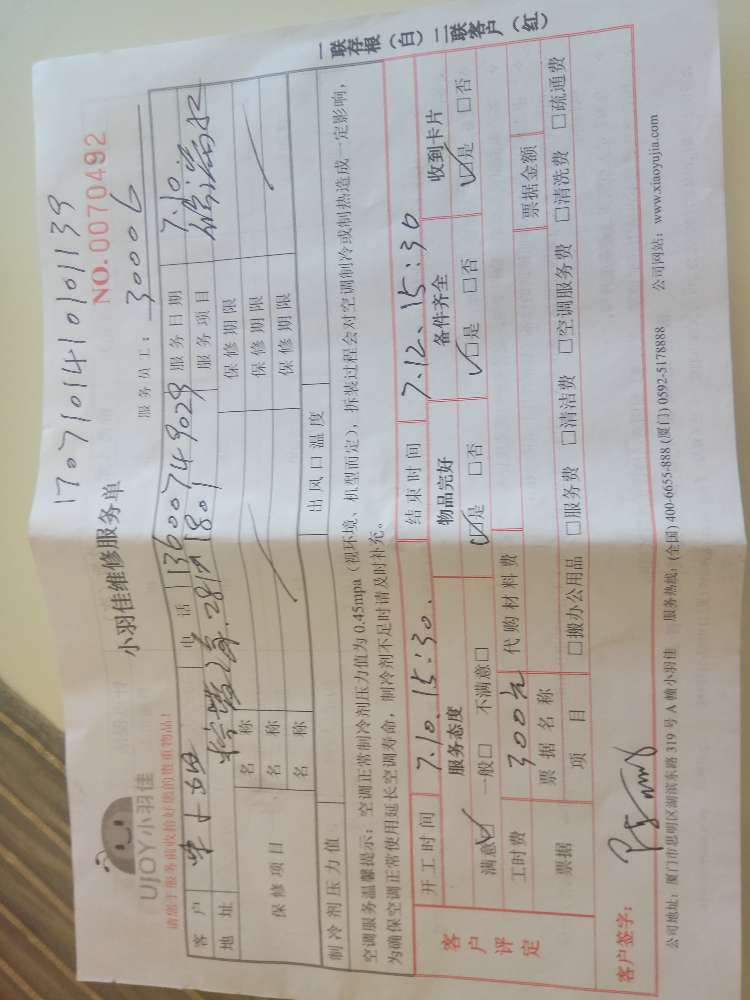 1707101410101139
UJOY小羽佳
小羽佳维修服务单
NO.0070492
请您于服务前收拾好您的贵重物品!
服务员工: 30006
客 户 电 话 13600749029 服务日期 7.10
地 址 281# 1801 服务项目
保修项目 名 称 保修期限
名 称 保修期限
名 称 保修期限
制冷剂压力值 出风口温度
空调服务温馨提示:空调正常制冷剂压力值为0.45mpa(视环境、机型而定),拆装过程会对空调制冷或制热造成一定影响,
为确保空调正常使用延长空调寿命,制冷剂不足时请及时补充。
客户评定
开工时间 7.10.15:30. 结束时间 7.12.15:30
服务态度 物品完好 备件齐全 收到卡片
满意☑ 一般□ 不满意□ ☑是 □否 ☑是 □否 ☑是 □否
工时费 300元 代购材料费
票据 票据名称 票据金额
项 目 □搬办公用品 □服务费 □清洁费 □空调服务费 □清洗费 □疏通费
客户签字:
公司地址:厦门市思明区湖滨东路319号A幢小羽佳 服务热线:(全国)400-6655-888 (厦门)0592-5178888 公司网站:www.xiaoyujia.com
一联存根(白)二联客户(红)